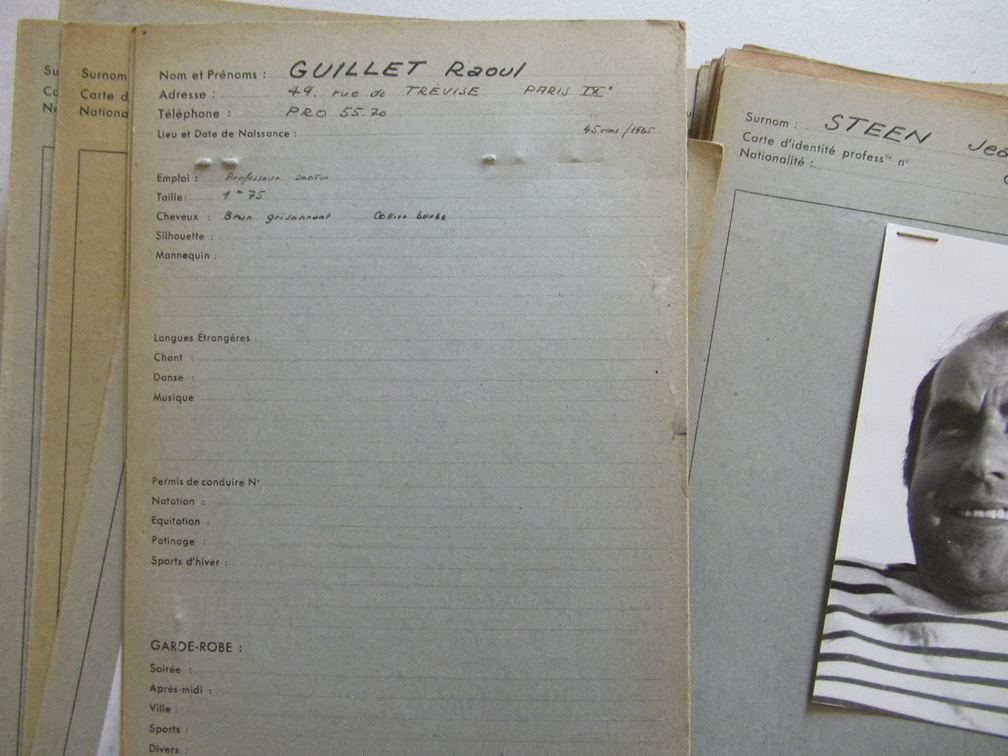 Su
Ca
Na
Surnom
Carte d
Nationa
Nom et Prénoms : GUILLET Raoul
Adresse : 49. rue de TREVISE PARIS IX°
Téléphone : PRO 55.70
Lieu et Date de Naissance : 45 ans /1965
Emploi : Professeur
Taille : 1m75
Cheveux : Brun grisonnant Collier barbe
Silhouette :
Mannequin :
Langues Étrangères :
Chant :
Danse :
Musique
Permis de conduire N°
Natation :
Equitation :
Patinage :
Sports d'hiver :
GARDE-ROBE :
Soirée :
Après-midi :
Ville :
Sports :
Divers :
Surnom : STEEN Jea
Carte d'identité profess^lle n°
Nationalité :